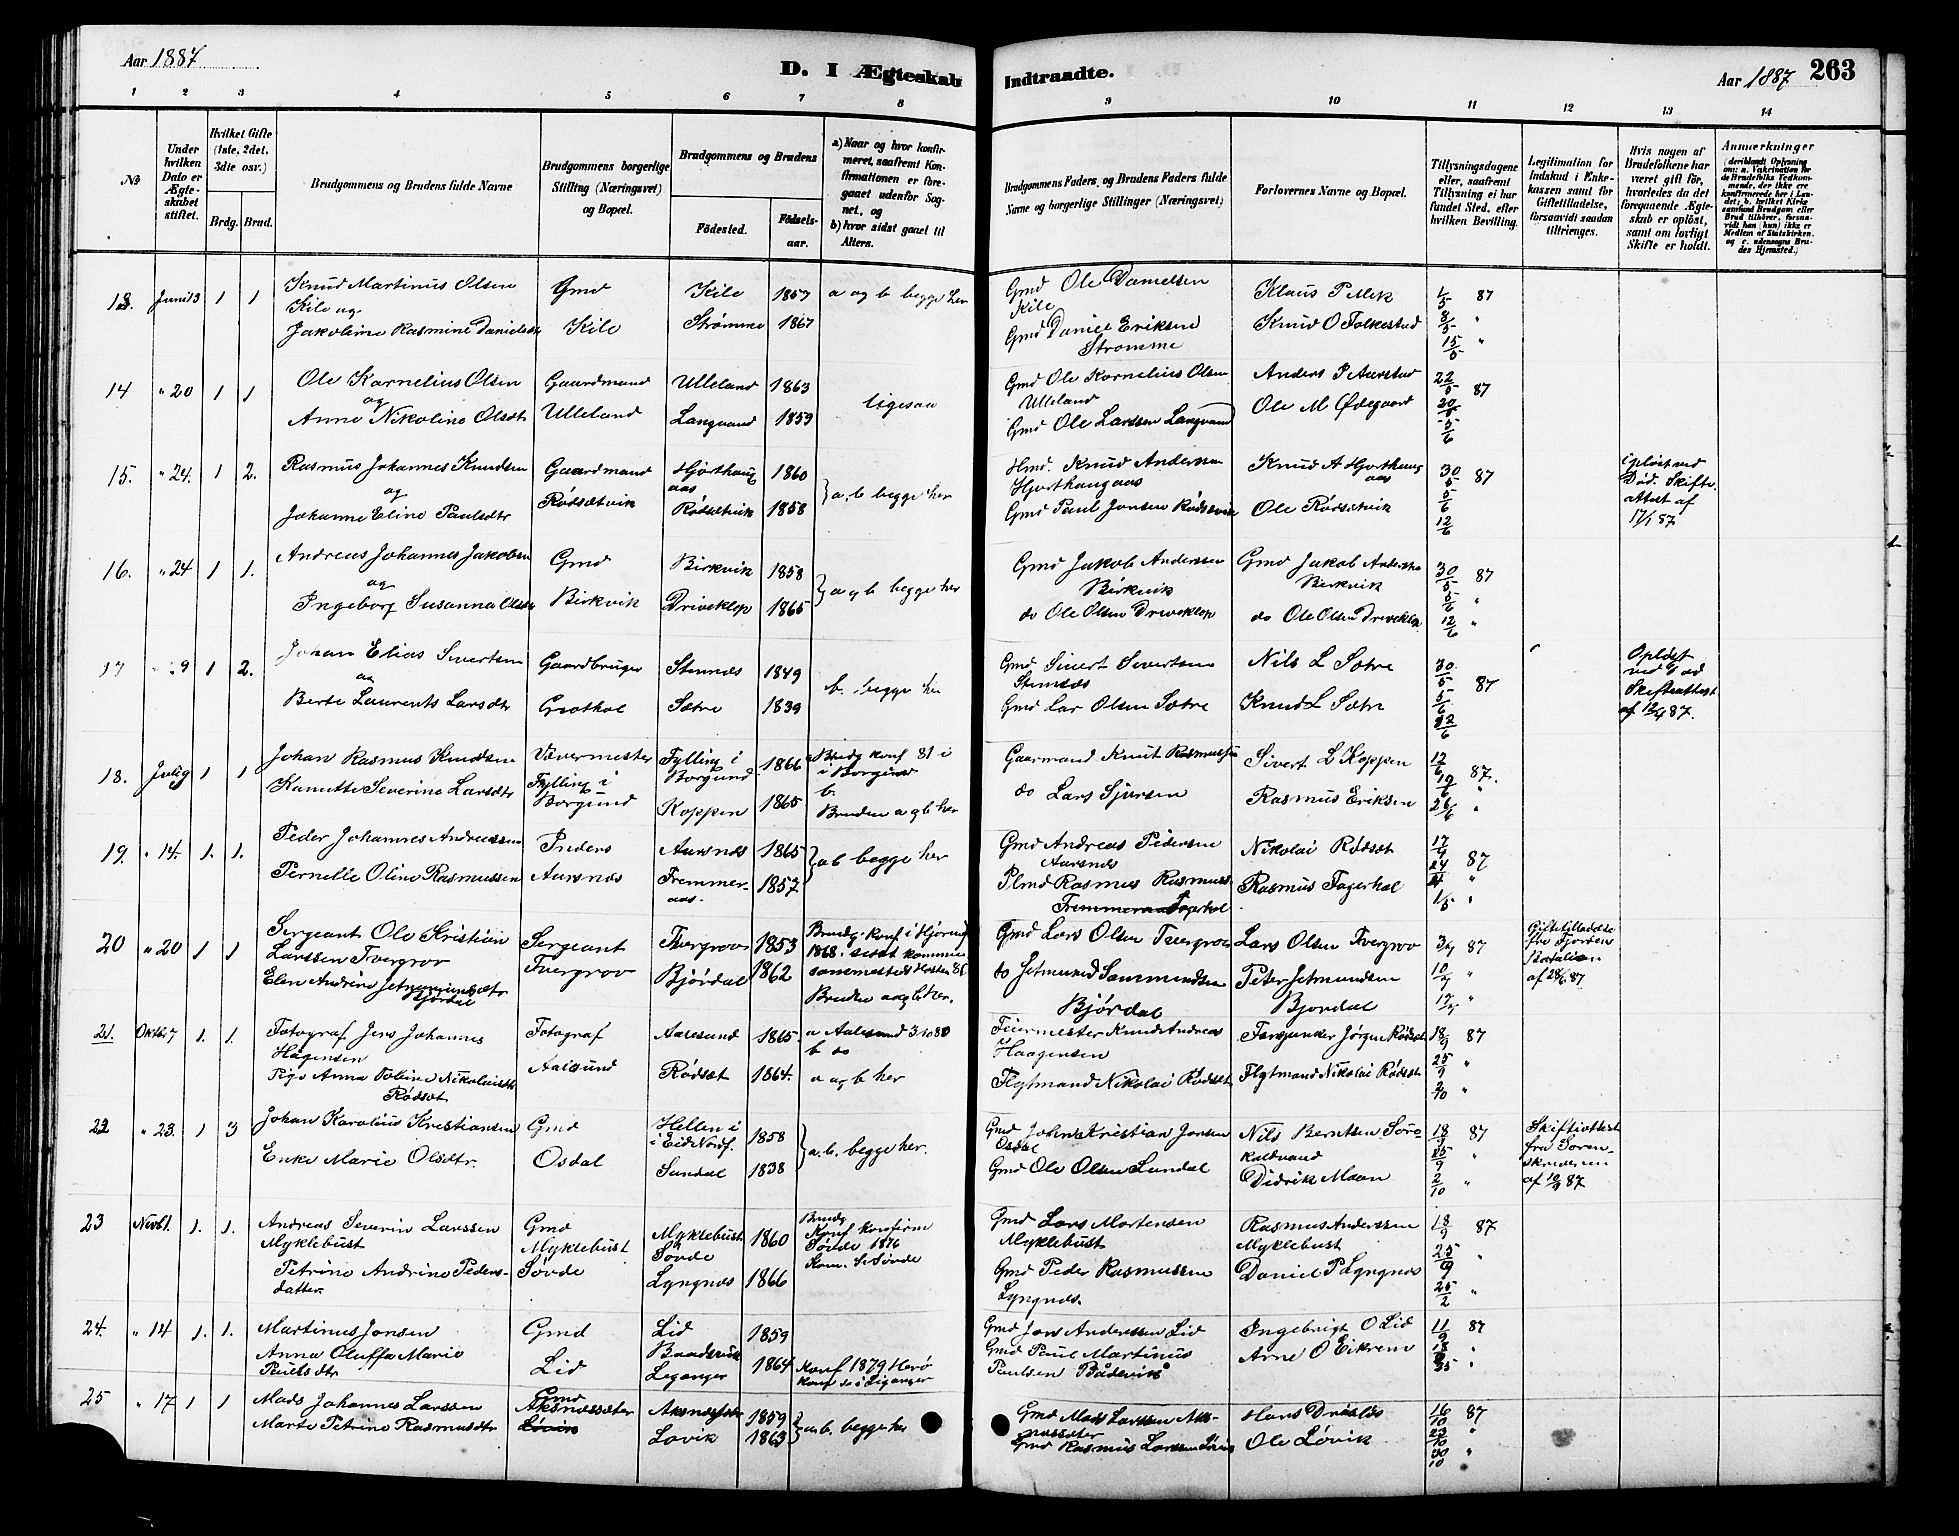 Aar 1887
D. I Ægteskab Indtraadte.
Aar 1887 263
1 2 3 4 5 6 7 8 9 10 11 12 13 14
No
Under hvilken Dato er Ægteskabet stiftet.
Hvilket Gifte (1ste, 2det, 3die osv.)
Brdg. Brud.
Brudgommens og Brudens fulde Navne
Brudgommens borgerlige Stilling (Næringsvei) og Bopæl.
Brudgommens og Brudens
Fødested.
Fødsels-aar.
a) Naar og hvor konfirmeret, saafremt Konfirmationen er foregaaet udenfor Sognet, og
b) hvor sidst gaaet til Alters.
Brudgommens Faders, og Brudens Faders fulde Navne og borgerlige Stillinger (Næringsvei)
Forlovernes Navne og Bopæl.
Tillysningsdagene eller, saafremt Tillysning ei har fundet Sted, efter hvilken Bevilling.
Legitimation for Indskud i Enkekassen samt for Giftetilladelse, forsaavidt saadan tiltrænges.
Hvis nogen af Brudefolkene har været gift før, hvorledes da det foregaaende Ægteskab er opløst, samt om lovligt Skifte er holdt.
Anmærkninger
13. Juni 13 1 1
Knud Martinus Olsen
Kile og
Jakobine Rasmine Danielsdtr
Gmd
Kile
Kile 1857
Strømme 1867
a og b begge her
Gmd Ole Danielsen
Kile
Gmd Daniel Eriksen
Strømme
Klaus P Myk
Knud O Folkestad
1/5 87
8/5 "
15/5 "
14 " 20 1 1
Ole Kornelius Olsen
og
Anne Nikoline Olsdtr
Gaardmand
Ulleland
Ulleland 1863
Langvand 1859
ligesaa
Gmd Ole Kornelius Olsen
Ulleland
Gmd Ole Larssen Langvand
Anders P Aarstad
Ole M Ødegaard
22/5 87
30/5
5/6
15. " 24. 1 2.
Rasmus Johannes Knudsen
og
Johanne Eline Paulsdtr
Gaardmand
Rødsætvik
Hjorthaug
aas 1860
Rødsætvik 1858
a, b begge her
Hmd. Knud Anderssen
Hjorthaugaas
Gmd Paul Jonsen Rødsetvik
Knud A Hjorthaug
aas
Ole Rødsetvik
30/5 87
5/6
12/6
opløst ved
Død. Skifte
attest af
17/1 87
16. " 24 1 1.
Andreas Johannes Jakobsen
og
Ingeborg Susanna Olsdtr
Gmd
Birkvik
Birkvik 1858
Driveklop 1865
a og b begge her
Gmd Jakob Anderssen
Birkvik
do Ole Olsen Driveklop
Gmd Jakob Anderssen
Birkvik
do Ole Olsen Driveklop
30/5 87
5/6 "
12/6 "
17 " 29 1 2.
Johan Elias Sivertsen
og
Berte Laurents Larsdtr
Gaardbruger
Stennes 1849
Sætre 1839
b. begge her
Gmd Sivert Sivertsen
Stennes
Gmd Lar Olsen Sætre
Nils L Sætre
Knud L Sætre
30/5
5/6 87
12/6
Opløst
ved Død
Skifteattest
af 12/4 87.
18. Juli 9 1 1
Johan Rasmus Knudsen
Kanutte Severine Larsdtr
Vævermester
Fylling i
Borgund
Fylling i
Borgund 1866
Koppen 1865
Brudg konf 81 i
i Borgund
b.
Bruden a og b her
Gaarmand Knut Rasmussen
do Lars Sjursen
Sivert L Koppen
Rasmus Eriksen
12/6 87.
19/6 "
26/6 "
19. " 14. 1. 1.
Peder Johannes Andreassen
Pernelle Oline Rasmussen
Inders
Aarsnes
Aarsnes 1865
Fremmer-
aas. 1857
a b begge her
Gmd Andreas Pedersen
Aarsnes
Plmd Rasmus Rasmuss
Fagerhol
Nikolai Rødset
Rasmus Fagerhol
17/4 87
24/4 "
1/5 "
20 " 20 1 1
Sergeant Ole Kristian
Larssen Tvergrov
Elen Andrine Jetmundsdtr
Bjørdal
Sergeant
Tvergrov
Tvergrov 1853
Bjørdal 1862
Brudg. konf i Hjørund
1868. sidst kommun
sammesteds Høsten 86
Bruden a og b her.
Gmd Lars Olsen Tvergrov
do Jetmund Sammundsen
Bjørdal
Lars Olsen Tvergrov
Peter Jetmundsen
Bjordal
3/7 87
10/7 "
17/7 "
Giftetilladelse
fra Fjordens
Batalion
af 28/6 87
21. Oktbr 7 1. 1.
Fotograf Jens Johannes
Hagensen
Pige Anna Oline Nikolaisdtr
Rødsæt
Fotograf
Aalesund
Aalesund 1865
Rødsæt 1864.
a Aalesund 3 10 80
b do
a og b her
Feiermester Knud Andreas
Haagensen
Flytmand Nikolai Rødset
Jørgen Rødset
Flytmand Nikolai Rødset
18/9 87
25/9 "
2/10 "
22 " 23. 1 3
Johan Karolius Kristiansen
Enke Marie Olsdtr.
Gmd
Osdal
Hellen i
i Eid Nordf. 1858
Sundal 1838
a. b. begge her.
Gmd Johan Kristian Jonsen
Osdal
Gmd Ole Olsen Sundal
Nils Berntsen Søre-
kaldvand
Didrik Maan
18/9 87
25/9 "
2/10 "
Skifteattest
fra Soren-
skriveren
af 10/9 87
23 Novb 1. 1. 1.
Andreas Severin Larssen
Myklebust
Petrine Andrine Peders-
datter
Gmd
Myklebust
Søvde
Myklebust
Søvde 1860
Lyngnes 1866
Brudg
Konf
Søvde 1876
Kom. S Søvde
Gmd Lars Mortensen
Myklebust
Gmd Peder Rasmussen
Lyngnes.
Rasmus Anderssen
Myklebust
Daniel P Lyngnes
18/9 87
25/9 "
25/2 "
24. " 14 1. 1.
Martinus Jonsen
Anna Oluffa Marie
Paulsdtr
Gmd
Lid
Lid 1859
Baadsvik
Leganger 1864
Konf 1879 Herø
kom do i Liganger
Gmd Jons Anderssen Lid
Gmd Paul Martinus
Paulsen Bådsvik
Ingebrigt O Lid
Arne O Eikrem
11/9 87
18/9 "
25 "
25 " 17 1 1
Mads Johannes Larssen
Marte Petrine Rasmusdtr
Gmd
Aksnessæter
Løvik
Aksnessæter 1859
Lovik 1863
a. b. begge her
Gmd Mads Larssen Aks-
nessæter
Gmd Rasmus Larssen Løvik
Hans Dravlös
Ole Løvik
16/10 87
23/10 "
30/10 "